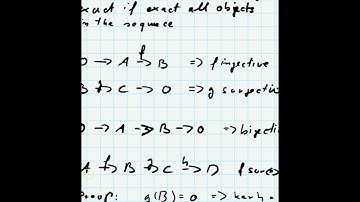 exact if exact all objects
in the sequence
0 → A →f B => f injective
B →g C → 0 => g surjective
0 → A → B → 0 => bijecti
A →f B →g C →h D f surjec
Proof: g(B)=0 => ker h =